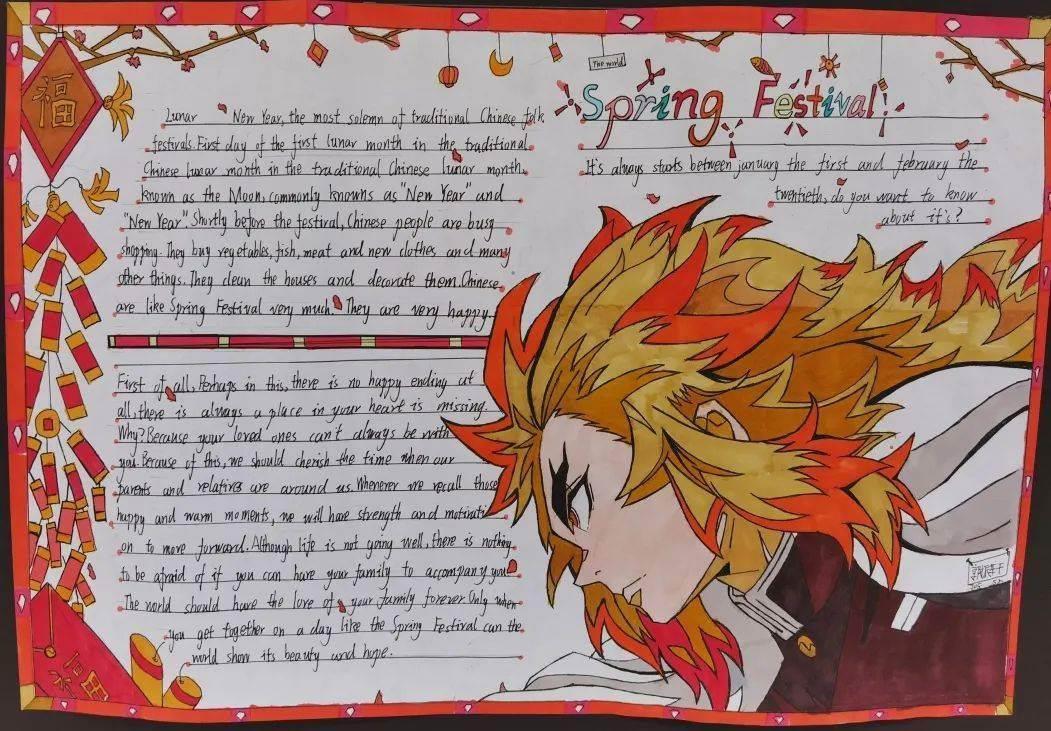 福
The world
Spring Festival!
It's always starts between january the first and february the
twentieth, do you want to know
about it's?
Lunar New Year, the most solemn of traditional Chinese folk
festivals. First day of the first lunar month in the traditional
Chinese lunar month in the traditional Chinese lunar month,
known as the Moon, commonly knowns as "New Year" and
"New Year". Shortly before the festival, Chinese people are busy
shopping. They buy vegetables, fish, meat and new clothes and many
other things. They clean the houses and decorate them. Chinese
are like Spring Festival very much. They are very happy.
First of all, Perhaps in this, there is no happy ending at
all, there is always a place in your heart is missing.
Why? Because your loved ones can't always be with
you. Because of this, we should cherish the time when our
parents and relatives are around us. Whenever we recall those
happy and warm moments, we will have strength and motivati
on to move forward. Although life is not going well, there is nothing
to be afraid of if you can have your family to accompany you
The world should have the love of your family forever. Only when
you get together on a day like the Spring Festival can the
world show its beauty and hope.
福